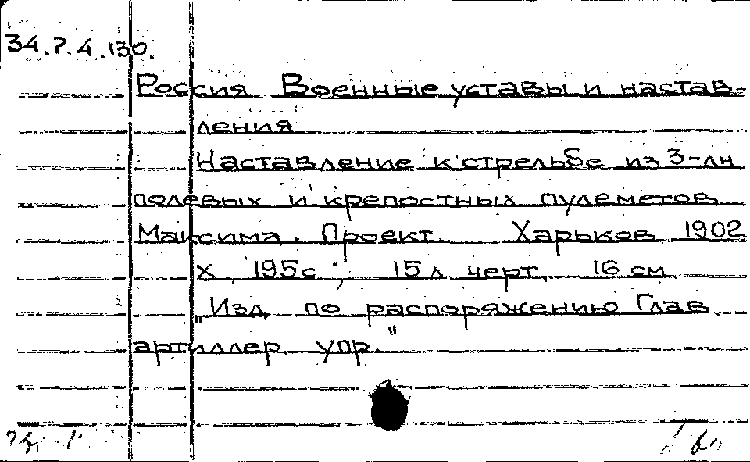 34.7.4.130.
Россия Военные уставы и настав-
ления
Наставление к стрельбе из 3-лн
полевых и крепостных пулеметов
Максима. Проект. Харьков 1902
X, 195с.; 15 л. черт. 16 см
"Изд. по распоряжению Глав.
артиллер. упр."